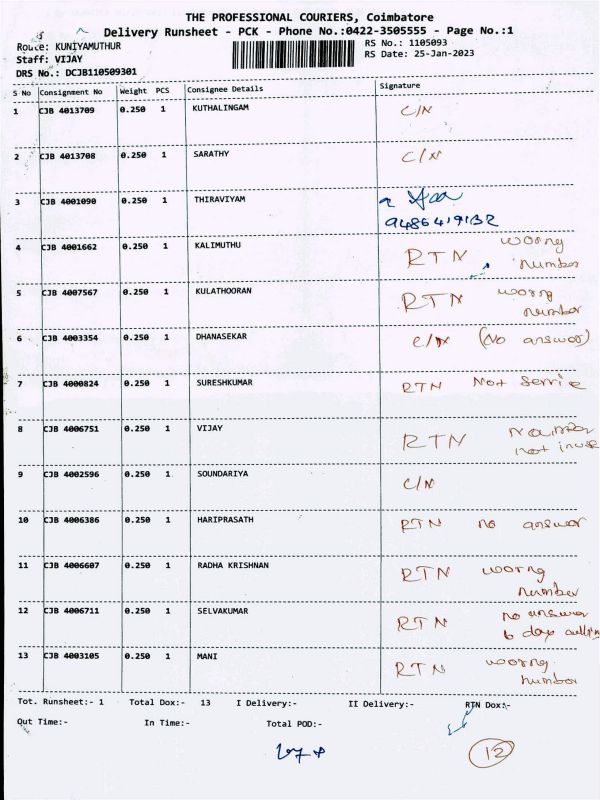 THE PROFESSIONAL COURIERS, Coimbatore
Delivery Runsheet - PCK - Phone No.:0422-3505555 - Page No.:1
Route: KUNIYAMUTHUR
RS No.: 1105093
Staff: VIJAY
RS Date: 25-Jan-2023
DRS No.: DCJB110509301
S No Consignment No Weight PCS Consignee Details Signature
1 CJB 4013709 0.250 1 KUTHALINGAM C/N
2 CJB 4013708 0.250 1 SARATHY C/N
3 CJB 4001090 0.250 1 THIRAVIYAM
9486419132
4 CJB 4001662 0.250 1 KALIMUTHU RTN worng
number
5 CJB 4007567 0.250 1 KULATHOORAN RTN worng
number
6 CJB 4003354 0.250 1 DHANASEKAR C/N (No answer)
7 CJB 4000824 0.250 1 SURESHKUMAR RTN Not servie
8 CJB 4006751 0.250 1 VIJAY RTN
not inuse
9 CJB 4002596 0.250 1 SOUNDARIYA C/N
10 CJB 4006386 0.250 1 HARIPRASATH RTN no answer
11 CJB 4006607 0.250 1 RADHA KRISHNAN RTN worng
number
12 CJB 4006711 0.250 1 SELVAKUMAR RTN no answer
6 days
13 CJB 4003105 0.250 1 MANI RTN worng
number
Tot. Runsheet:- 1 Total Dox:- 13 I Delivery:- II Delivery:- RTN Dox:-
Out Time:- In Time:- Total POD:-
12